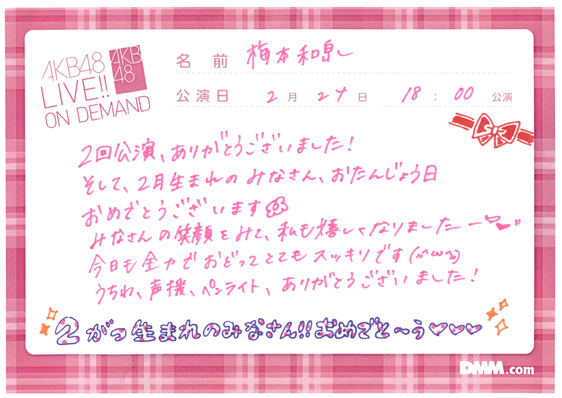 AKB48
LIVE!!
ON DEMAND
AKB
48
名前 梅本和泉
公演日 2月24日 18:00 公演
2回公演、ありがとうございました!
そして、2月生まれのみなさん、おたんじょう日
おめでとうございます
みなさんの笑顔をみて、私も嬉しくなりましたー
今日も全力でおどってとてもスッキリです(^ω^)
うちわ、声援、ペンライト、ありがとうございました!
2がつ生まれのみなさん!!おめでと〜う♡♡♡
DMM.com